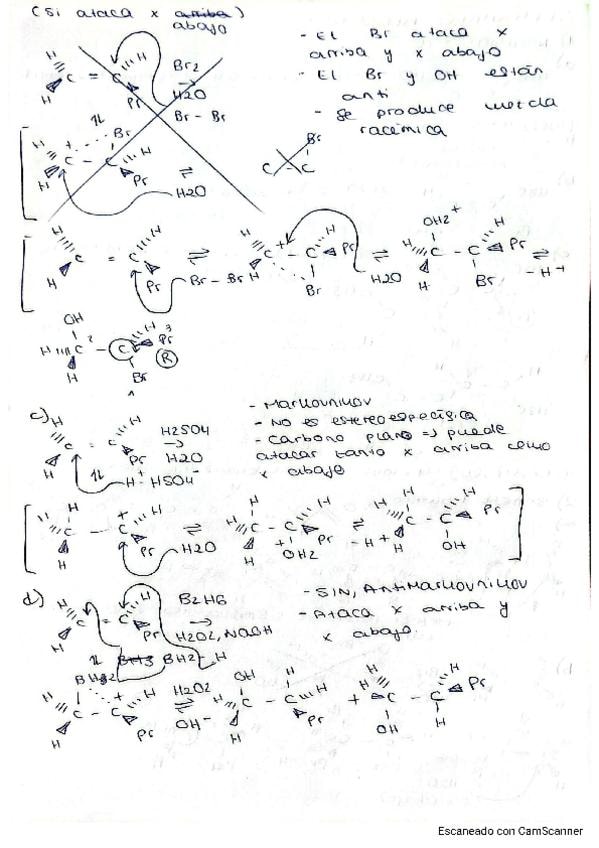 (Si ataca x arriba)
abajo
- El Br ataca x
arriba y x abajo
- El Br y OH están
anti
- Se produce mezcla
racémica
H H
C = C
H Pr
Br2
→
H2O
Br - Br
⇌
H + Br
C - C H
H Pr
⇌
H2O
Br
C - C
H H
C = C
H Pr
Br - Br
⇌
H + H
C - C Pr
H Br
H2O
⇌
OH2+ H
H C - C Pr
H Br
⇌
- H+
OH H 3
H C 2 - C Pr
H Br (R)
1
c) H H
C = C
H Pr
H2SO4
→
H2O
⇌ H - HSO4-
- Markovnikov
- No es estereoespecífica
- Carbono plano => puede
atacar tanto x arriba como
x abajo
H H H
C - C +
H Pr
H2O
⇌
H H
H C - C Pr
H + OH2
⇌
- H+
H H
H C - C Pr
H OH
d) H H
C = C
H Pr
B2H6
→
H2O2, NaOH
- SIN, AntiMarkovnikov
- Ataca x arriba y
x abajo
⇌ BH3 BH2 - H
BH2
H + H
C - C
H Pr
H2O2
⇌
OH-
OH H
H C - C H
H Pr
+
H H
H C - C Pr
OH H
Escaneado con CamScanner